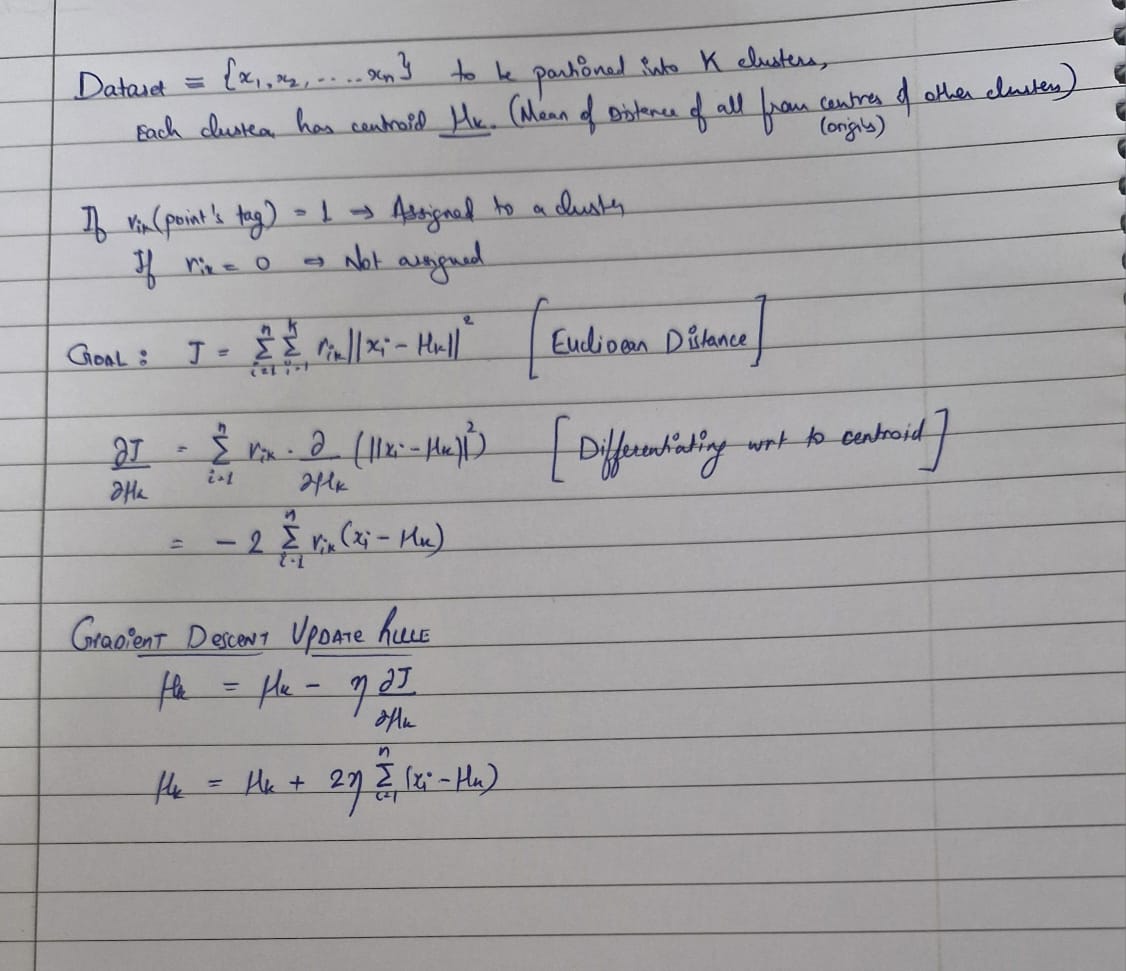 Dataset = {x₁, x₂, ..... xₙ} to be partioned into K clusters,
Each cluster has centroid μₖ. (Mean of Distence of all from centres of other clusters)
(origins)
If rᵢₖ (point's tag) = 1 → Assigned to a cluster
If rᵢₖ = 0 → Not assigned
GOAL: J = Σᵢ₌₁ⁿ Σᵢ₌₁ᴷ rᵢₖ ||xᵢ - μₖ||² [Euclidean Distance]
∂J/∂μₖ = Σᵢ₌₁ⁿ rᵢₖ · ∂/∂μₖ (||xᵢ - μₖ||²) [Differentiating wrt to centroid]
= - 2 Σᵢ₌₁ⁿ rᵢₖ (xᵢ - μₖ)
GRADIENT DESCENT UPDATE RULE
μₖ = μₖ - η ∂J/∂μₖ
μₖ = μₖ + 2η Σᵢ₌₁ⁿ (xᵢ - μₖ)